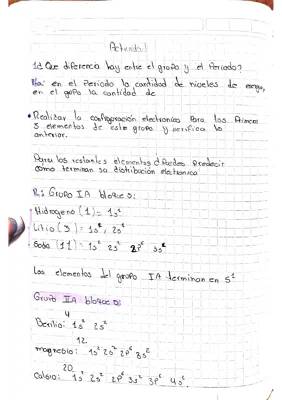 Actividad
1d Que diferencia hay entre el grupo y el Periodo?
en el Periodo la cantidad de niveles de energía,
en el grupo la cantidad de
• Realizar la configuración electronica Para los Primeros
3 elementos de este grupo y verifica lo
anterior.
Para los restantes elementos d Puedes Predecir
como terminan su distribución electronica
R: Grupo IA bloque S:
Hidrogeno (1) = 1s¹
Litio (3) = 1s², 2s¹
Soda (11) = 1s² 2s² 2p⁶ 3s¹
Los elementos del grupo IA terminan en S¹
Grupo IIA bloque S:
4
Berilio: 1s² 2s²
12
magnesio: 1s² 2s² 2p⁶ 3s²
20
Calcio: 1s² 2s² 2p⁶ 3s² 3p⁶ 4s²